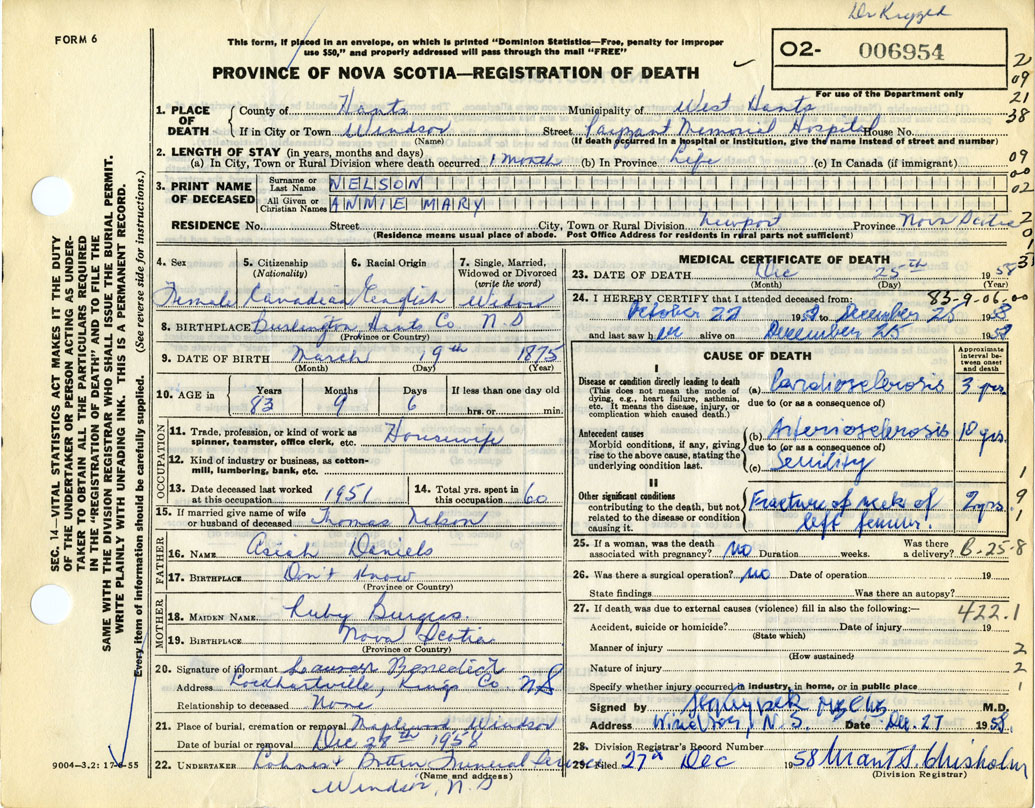 FORM 6
This form, if placed in an envelope, on which is printed "Dominion Statistics—Free, penalty for improper
use $50," and properly addressed will pass through the mail "FREE"
PROVINCE OF NOVA SCOTIA—REGISTRATION OF DEATH
O2- 006954
For use of the Department only
2
09
21
38
09
00
02
2
0
31
1. PLACE OF DEATH County of Hants Municipality of West Hants
If in City or Town Windsor Street Payzant Memorial Hospital House No.
(Name) (If death occurred in a hospital or institution, give the name instead of street and number)
2. LENGTH OF STAY (in years, months and days)
(a) In City, Town or Rural Division where death occurred 1 month (b) In Province Life (c) In Canada (if immigrant)
3. PRINT NAME OF DECEASED Surname or Last Name NELSON
All Given or Christian Names ANNIE MARY
RESIDENCE No. Street City, Town or Rural Division Newport Province Nova Scotia
(Residence means usual place of abode. Post Office Address for residents in rural parts not sufficient)
SEC. 14—VITAL STATISTICS ACT MAKES IT THE DUTY
OF THE UNDERTAKER OR PERSON ACTING AS UNDER-
TAKER TO OBTAIN ALL THE PARTICULARS REQUIRED
IN THE "REGISTRATION OF DEATH" AND TO FILE THE
SAME WITH THE DIVISION REGISTRAR WHO SHALL ISSUE THE BURIAL PERMIT.
WRITE PLAINLY WITH UNFADING INK. THIS IS A PERMANENT RECORD.
Every item of information should be carefully supplied. (See reverse side for instructions.)
4. Sex 5. Citizenship (Nationality) 6. Racial Origin 7. Single, Married, Widowed or Divorced (write the word)
Female Canadian English Widow
8. BIRTHPLACE Burlington Hants Co. N.S
(Province or Country)
9. DATE OF BIRTH March 19th 1875
(Month) (Day) (Year)
10. AGE in Years Months Days If less than one day old
83 9 6 hrs. or min.
OCCUPATION
11. Trade, profession, or kind of work as spinner, teamster, office clerk, etc. Housewife
12. Kind of industry or business, as cotton-mill, lumbering, bank, etc.
13. Date deceased last worked at this occupation 1951 14. Total yrs. spent in this occupation 60
15. If married give name of wife or husband of deceased Thomas Nelson
FATHER
16. NAME Daniels
17. BIRTHPLACE Don't Know
(Province or Country)
MOTHER
18. MAIDEN NAME Ruby Burgess
19. BIRTHPLACE Nova Scotia
(Province or Country)
20. Signature of informant Benedict
Address Lockhartville, Kings Co N.S
Relationship to deceased None
21. Place of burial, cremation or removal Maplewood Windsor
Date of burial or removal Dec 28th 1958
22. UNDERTAKER Funeral Service
(Name and address)
Windsor, N.S
9004-3.2: 17-6-55
MEDICAL CERTIFICATE OF DEATH
23. DATE OF DEATH Dec 25th 1958
(Month) (Day) (Year)
24. I HEREBY CERTIFY that I attended deceased from: 83-9-06-00
October 22 1958 to December 25 1958
and last saw her alive on December 25 1958
CAUSE OF DEATH
Approximate interval between onset and death
I
Disease or condition directly leading to death (a) Cardiosclerosis 3 yrs.
(This does not mean the mode of dying, e.g., heart failure, asthenia, etc. It means the disease, injury, or complication which caused death.) due to (or as a consequence of)
Antecedent causes (b) Arteriosclerosis 10 yrs.
Morbid conditions, if any, giving rise to the above cause, stating the underlying condition last. due to (or as a consequence of)
(c) Senility
II
Other significant conditions contributing to the death, but not related to the disease or condition causing it. Fracture of neck of left femur. 2 yrs.
9
1
25. If a woman, was the death associated with pregnancy? no Duration weeks. Was there a delivery? B-25-8
26. Was there a surgical operation? no Date of operation 19
State findings Was there an autopsy?
27. If death was due to external causes (violence) fill in also the following:— 422.1
Accident, suicide or homicide? Date of injury 19
(State which)
Manner of injury 2
(How sustained)
Nature of injury 2
Specify whether injury occurred in industry, in home, or in public place 1
Signed by M.D.
Address Windsor, N.S. Date Dec. 27 1958
28. Division Registrar's Record Number
29. Filed 27th Dec 1958 Grant S. Chisholm
(Division Registrar)